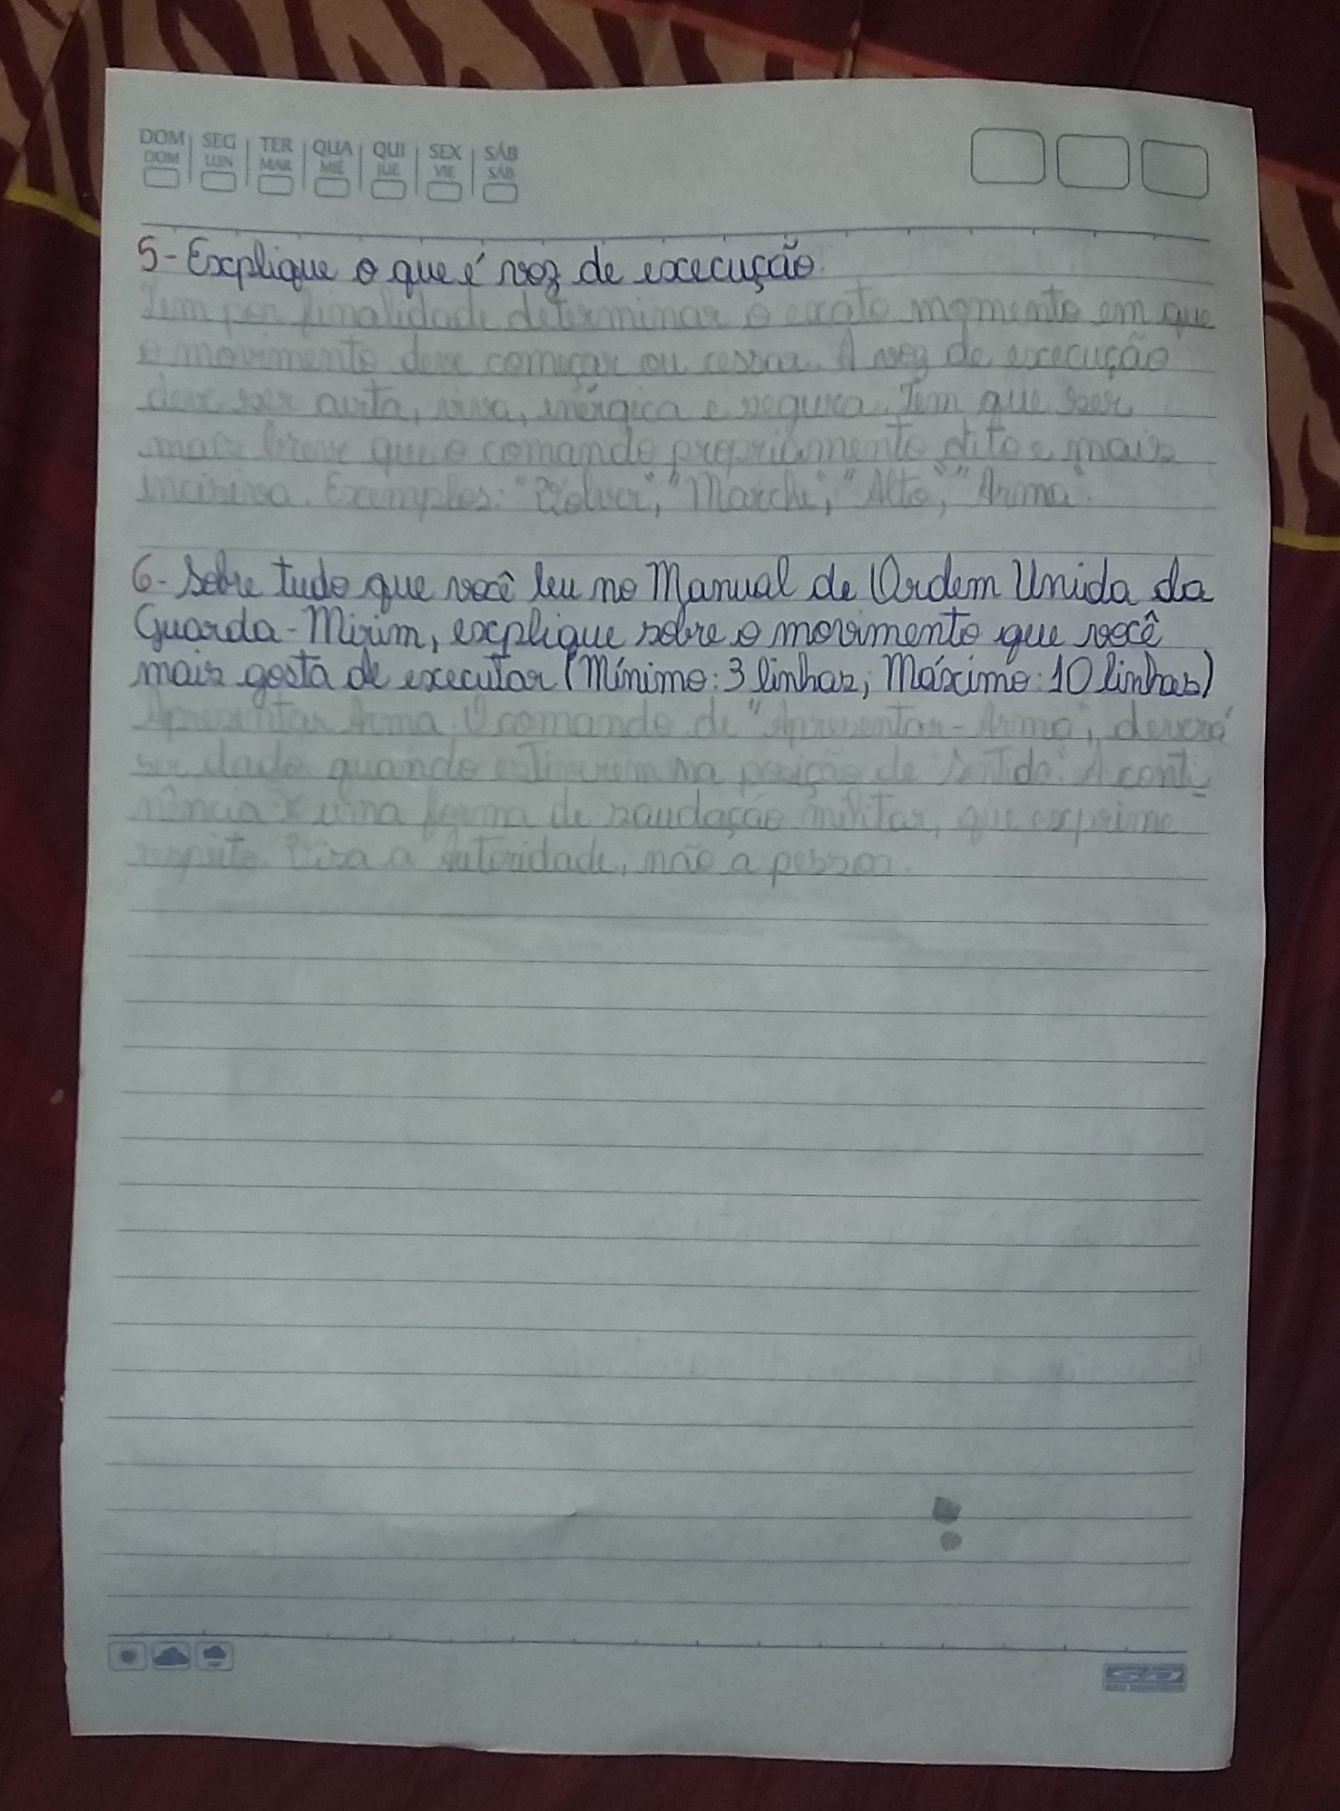 DOM SEG TER QUA QUI SEX SÁB
DOM LUN MAR MIÉ JUE VIE SÁB
5- Explique o que é voz de execução
Tem por finalidade determinar o exato momento em que
o movimento deve começar ou cessar. A voz de execução
deve ser curta, viva, enérgica e segura. Tem que ser
mais breve que o comando propriamente dito e mais
incisiva. Exemplos: "Volver", "Marche", "Alto", "Arma".
6- Sobre tudo que você leu no Manual de Ordem Unida da
Guarda-Mirim, explique sobre o movimento que você
mais gosta de executar (Mínimo: 3 linhas, Máximo: 10 linhas)
Apresentar Arma. O comando de "Apresentar-Arma", deverá
ser dado quando estiverem na posição de "Sentido". A conti-
nência é uma forma de saudação militar, que exprime
respeito. Visa a autoridade, não a pessoa.